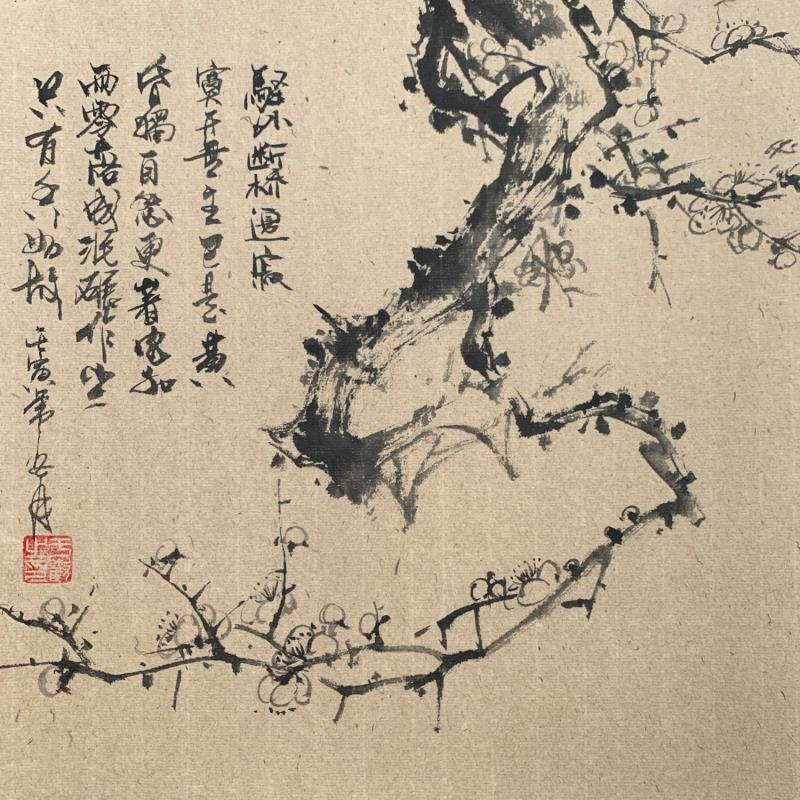 驛外斷橋邊寂
寞开無主已是黄
昏獨自愁更著風和
雨零落成泥碾作尘
只有香如故 壬寅